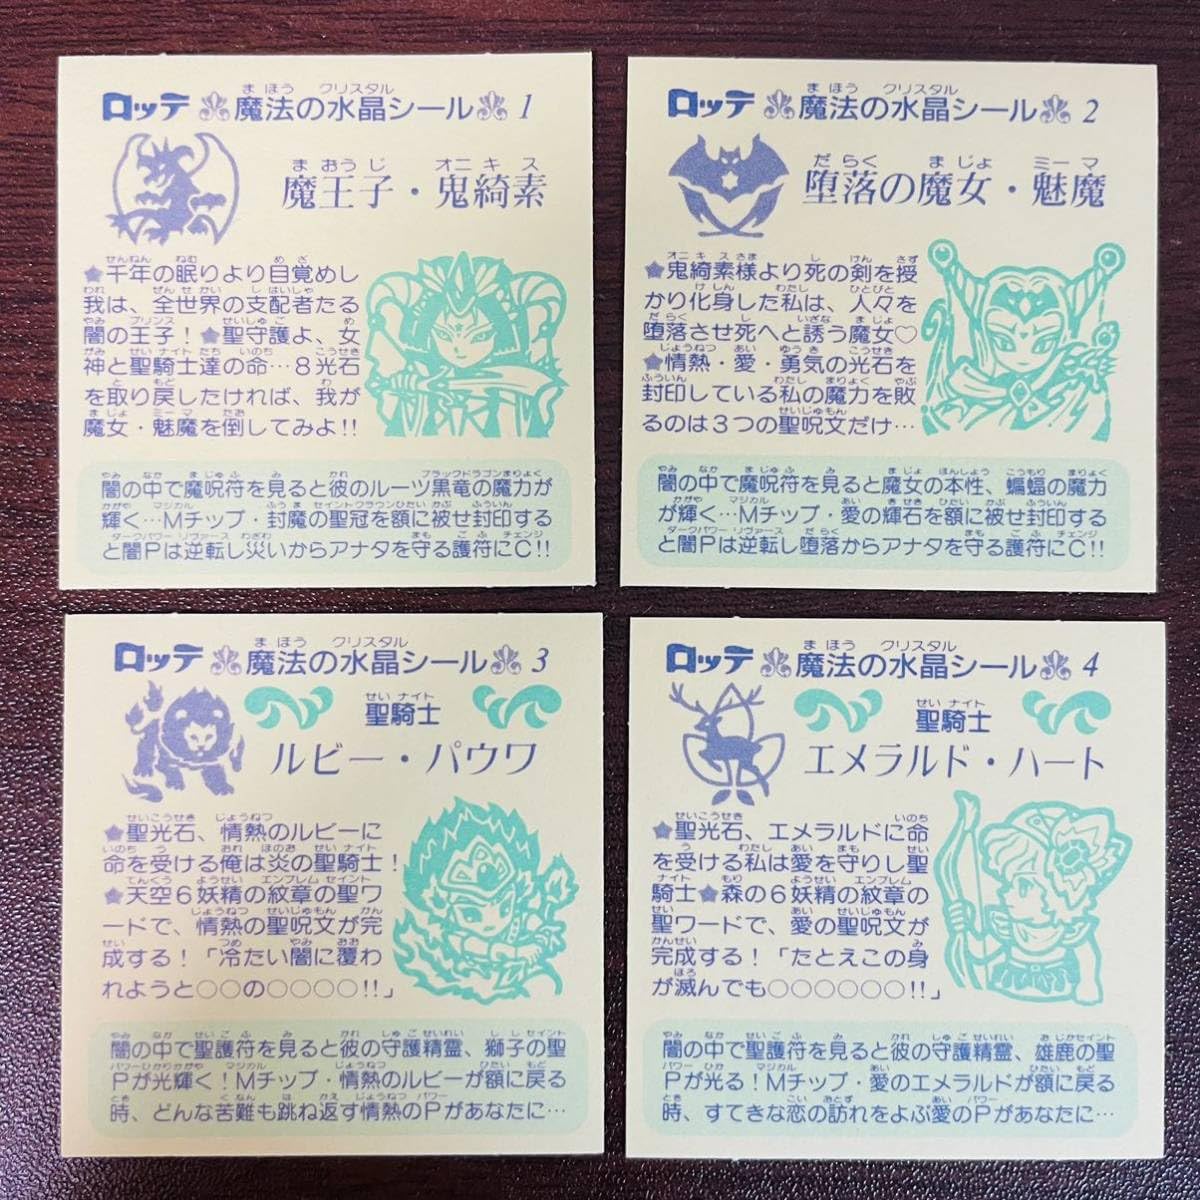 ロッテ 魔法の水晶シール 1
まほう クリスタル
魔王子・鬼綺素
まおうじ オニキス
★千年の眠りより目覚めし
我は、全世界の支配者たる
闇の王子！★聖守護よ、女
神と聖騎士達の命…８光石
を取り戻したければ、我が
魔女・魅魔を倒してみよ!!
闇の中で魔呪符を見ると彼のルーツ黒竜の魔力が
輝く…Mチップ・封魔の聖冠を額に被せ封印する
と闇Pは逆転し災いからアナタを守る護符にC!!
ロッテ 魔法の水晶シール 2
まほう クリスタル
堕落の魔女・魅魔
だらく まじょ ミーマ
★鬼綺素様より死の剣を授
かり化身した私は、人々を
堕落させ死へと誘う魔女♡
★情熱・愛・勇気の光石を
封印している私の魔力を敗
るのは３つの聖呪文だけ…
闇の中で魔呪符を見ると魔女の本性、蝙蝠の魔力
が輝く…Mチップ・愛の輝石を額に被せ封印する
と闇Pは逆転し堕落からアナタを守る護符にC!!
ロッテ 魔法の水晶シール 3
まほう クリスタル
聖騎士
せい ナイト
ルビー・パウワ
★聖光石、情熱のルビーに
命を受ける俺は炎の聖騎士！
★天空６妖精の紋章の聖ワ
ードで、情熱の聖呪文が完
成する！「冷たい闇に覆わ
れようと○○の○○○○!!」
闇の中で聖護符を見ると彼の守護精霊、獅子の聖
Pが光輝く！Mチップ・情熱のルビーが額に戻る
時、どんな苦難も跳ね返す情熱のPがあなたに…
ロッテ 魔法の水晶シール 4
まほう クリスタル
聖騎士
せい ナイト
エメラルド・ハート
★聖光石、エメラルドに命
を受ける私は愛を守りし聖
騎士★森の６妖精の紋章の
聖ワードで、愛の聖呪文が
完成する！「たとえこの身
が滅んでも○○○○○○!!」
闇の中で聖護符を見ると彼の守護精霊、雄鹿の聖
Pが光る！Mチップ・愛のエメラルドが額に戻る
時、すてきな恋の訪れをよぶ愛のPがあなたに…